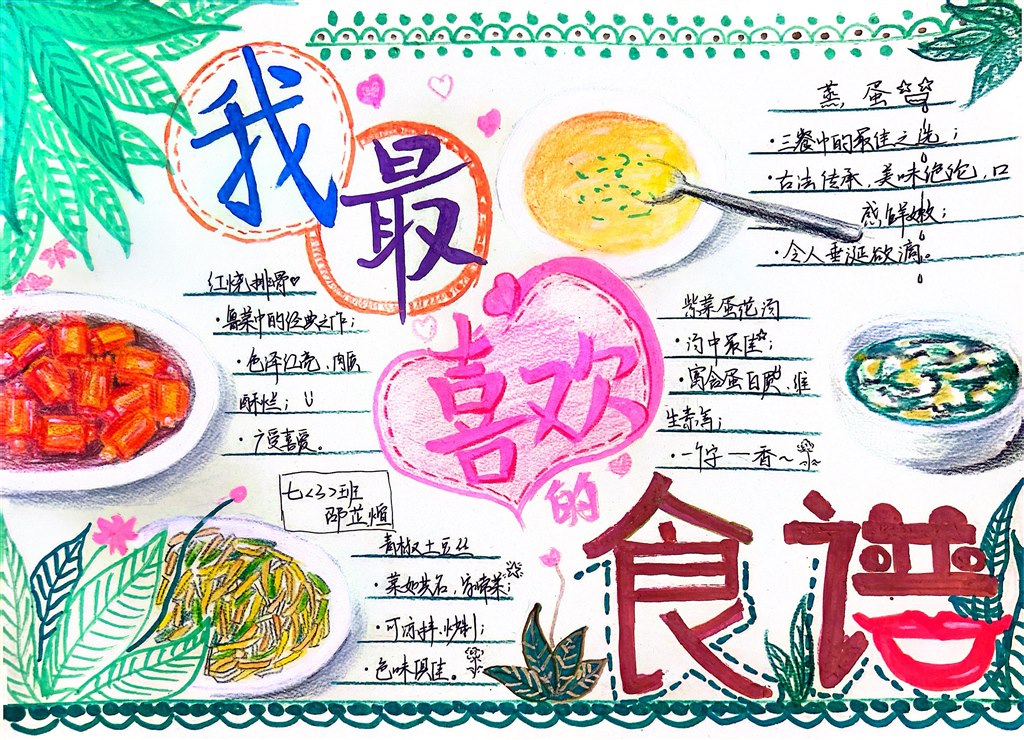 我
最
喜欢
的
食谱
蒸蛋
·三餐中的最佳之选;
·古法传承,美味绝伦,口
感鲜嫩;
·令人垂涎欲滴。
红烧排骨
·粤菜中的经典之作;
·色泽红亮,肉质
酥烂;
·广受喜爱。
紫菜蛋花汤
·汤中最佳;
·富含蛋白质,维
生素等;
·一个字——香~
七<3>班
青椒土豆丝
·菜如其名,家常菜;
·可凉拌,炒制;
·色味俱佳。